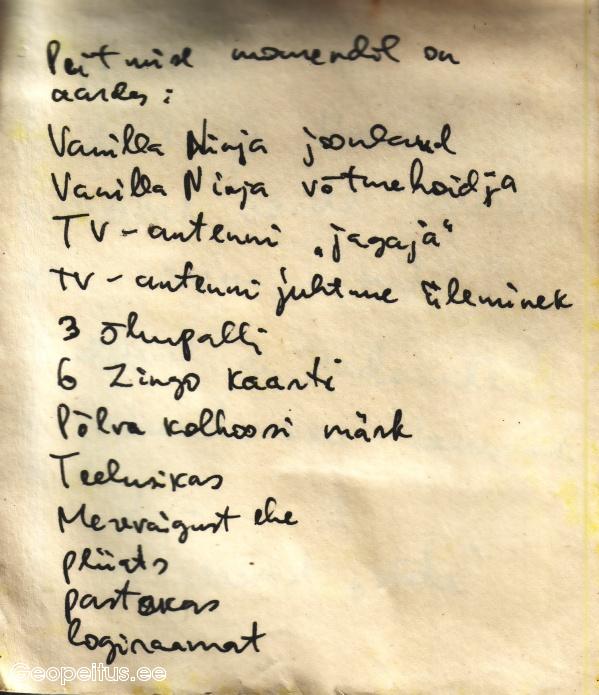 Peitmise momendil on
aardes:
Vanilla Ninja joonlaud
Vanilla Ninja võtmehoidja
TV-antenni „jagaja“
TV-antenni juhtme üleminek
3 õhupalli
6 Zingo kaarti
Põlva kolhoosi märk
Teelusikas
Merevaigust ehe
pliiats
pastakas
logiraamat
Geopeitus.ee